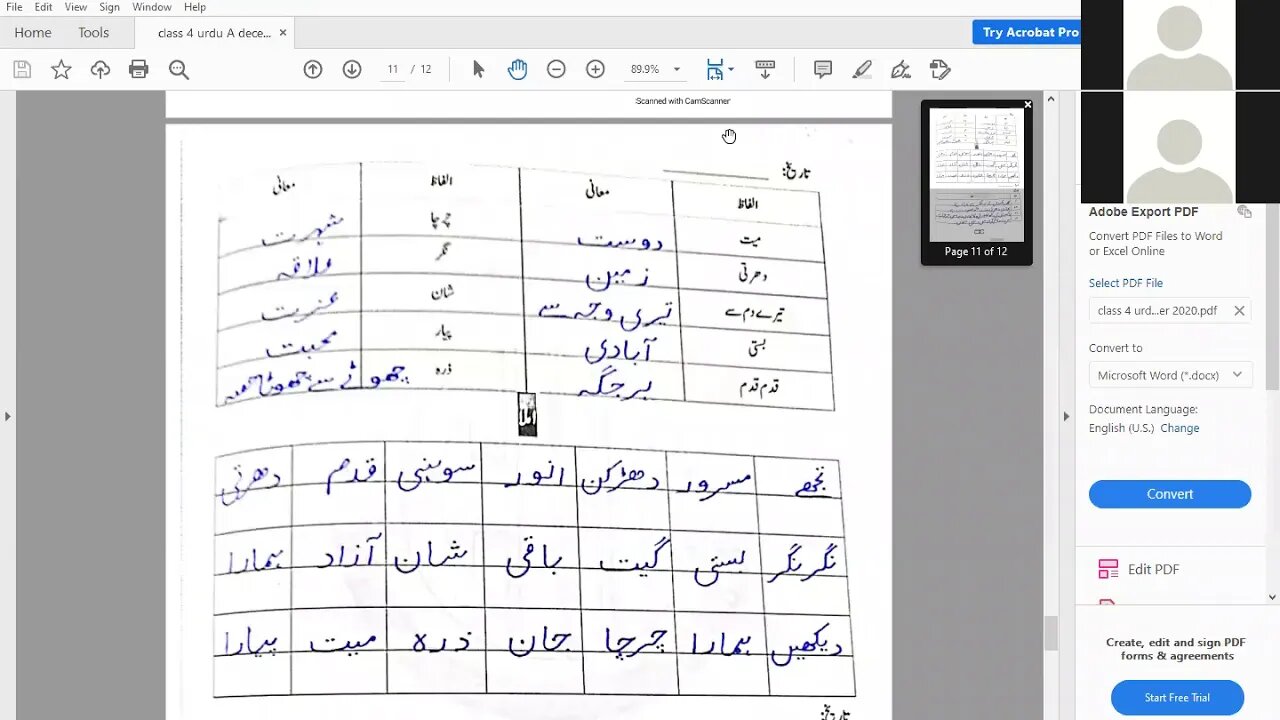 File Edit View Sign Window Help
Home Tools class 4 urdu A dece... ×
Try Acrobat Pro
11 / 12 89.9%
Scanned with CamScanner
تاریخ:
الفاظ معانی الفاظ معانی
میت دوست چرچا شہرت
دھرتی زمین نگر علاقہ
تیرے دم سے تیری وجہ سے شان عزت
بستی آبادی پیار محبت
قدم قدم ہر جگہ ذرہ چھوٹے سے چھوٹا حصہ
املا
تجھے مسرور دھڑکن انور سوہنی قدم دھرتی
نگر نگر بستی گیت باقی شان آزاد ہمارا
دیکھیں ہمارا چرچا جان ذرہ میت پیارا
تاریخ:
Page 11 of 12
Adobe Export PDF
Convert PDF Files to Word
or Excel Online
Select PDF File
class 4 urd...er 2020.pdf
Convert to
Microsoft Word (*.docx)
Document Language:
English (U.S.) Change
Convert
Edit PDF
Create, edit and sign PDF
forms & agreements
Start Free Trial